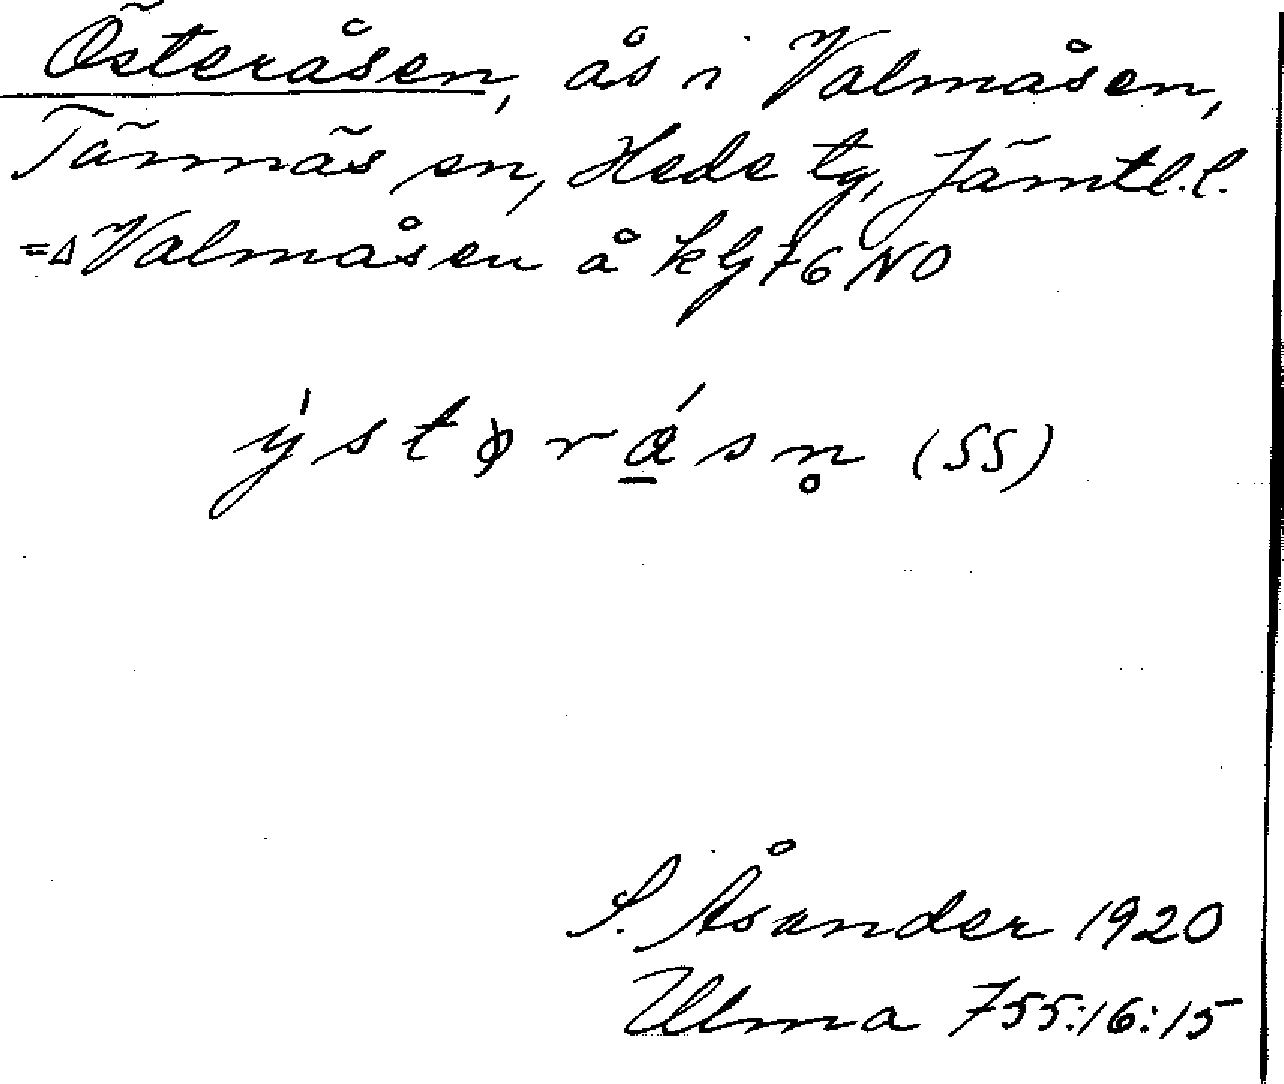 Österåsen, ås i Valmåsen,
Tännäs sn, Hede tg, Jämtl.l.
=Δ Valmåsen å kbl 76 NO
ýstǝrásn̥ (SS)
S. Åsander 1920
Ulma 755:16:15